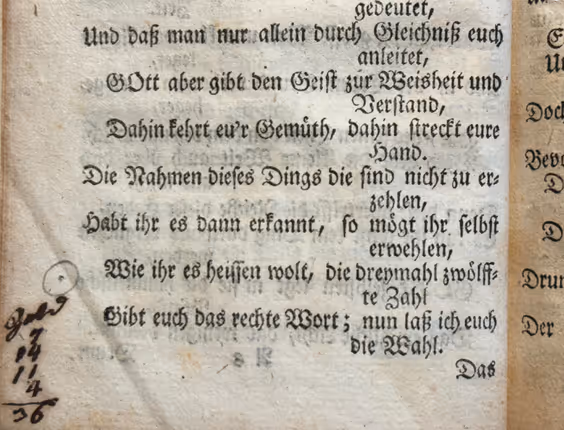 gedeutet,
Und daß man nur allein durch Gleichniß euch
anleitet,
GOtt aber gibt den Geist zur Weisheit und
Verstand,
Dahin kehrt eu'r Gemüth, dahin streckt eure
Hand.
Die Nahmen dieses Dings die sind nicht zu er-
zehlen,
Habt ihr es dann erkannt, so mögt ihr selbst
erwehlen,
Wie ihr es heissen wolt, die dreymahl zwölff-
te Zahl
Gibt euch das rechte Wort; nun laß ich euch
die Wahl.
Das
Gold
7
14
11
4
36
Doch
Bevo
D
D
Drun
Der